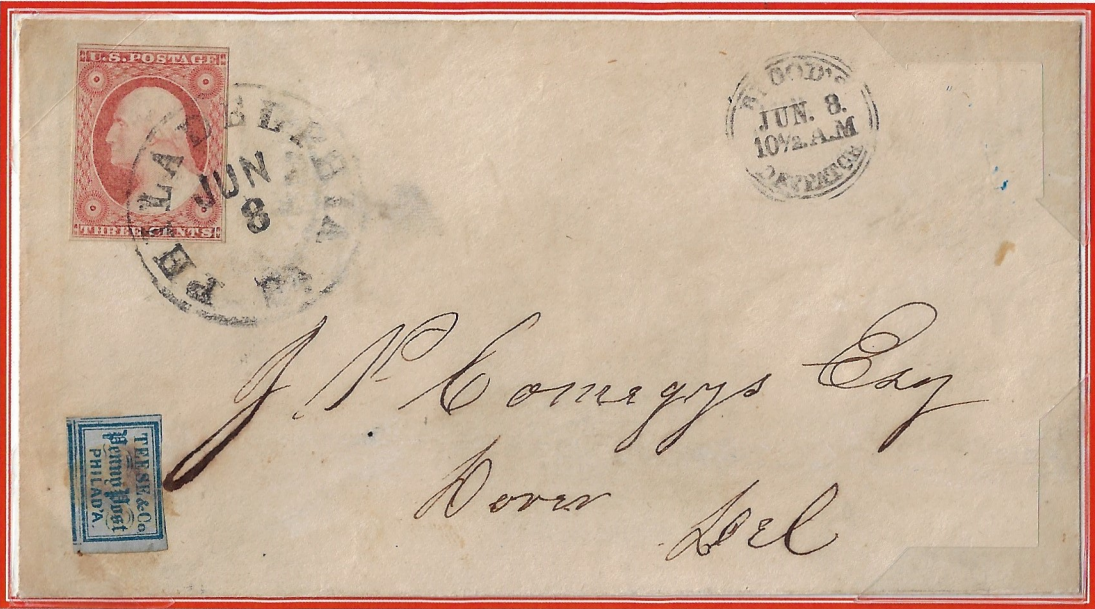 U.S. POSTAGE
THREE CENTS
PHILADELPHIA
JUN
8
BLOOD'S
JUN. 8.
10½ A.M
DESPATCH
J P Comegys Esq
Dover
Del
TEESE & Co
Penny Post
PHILAD'A.